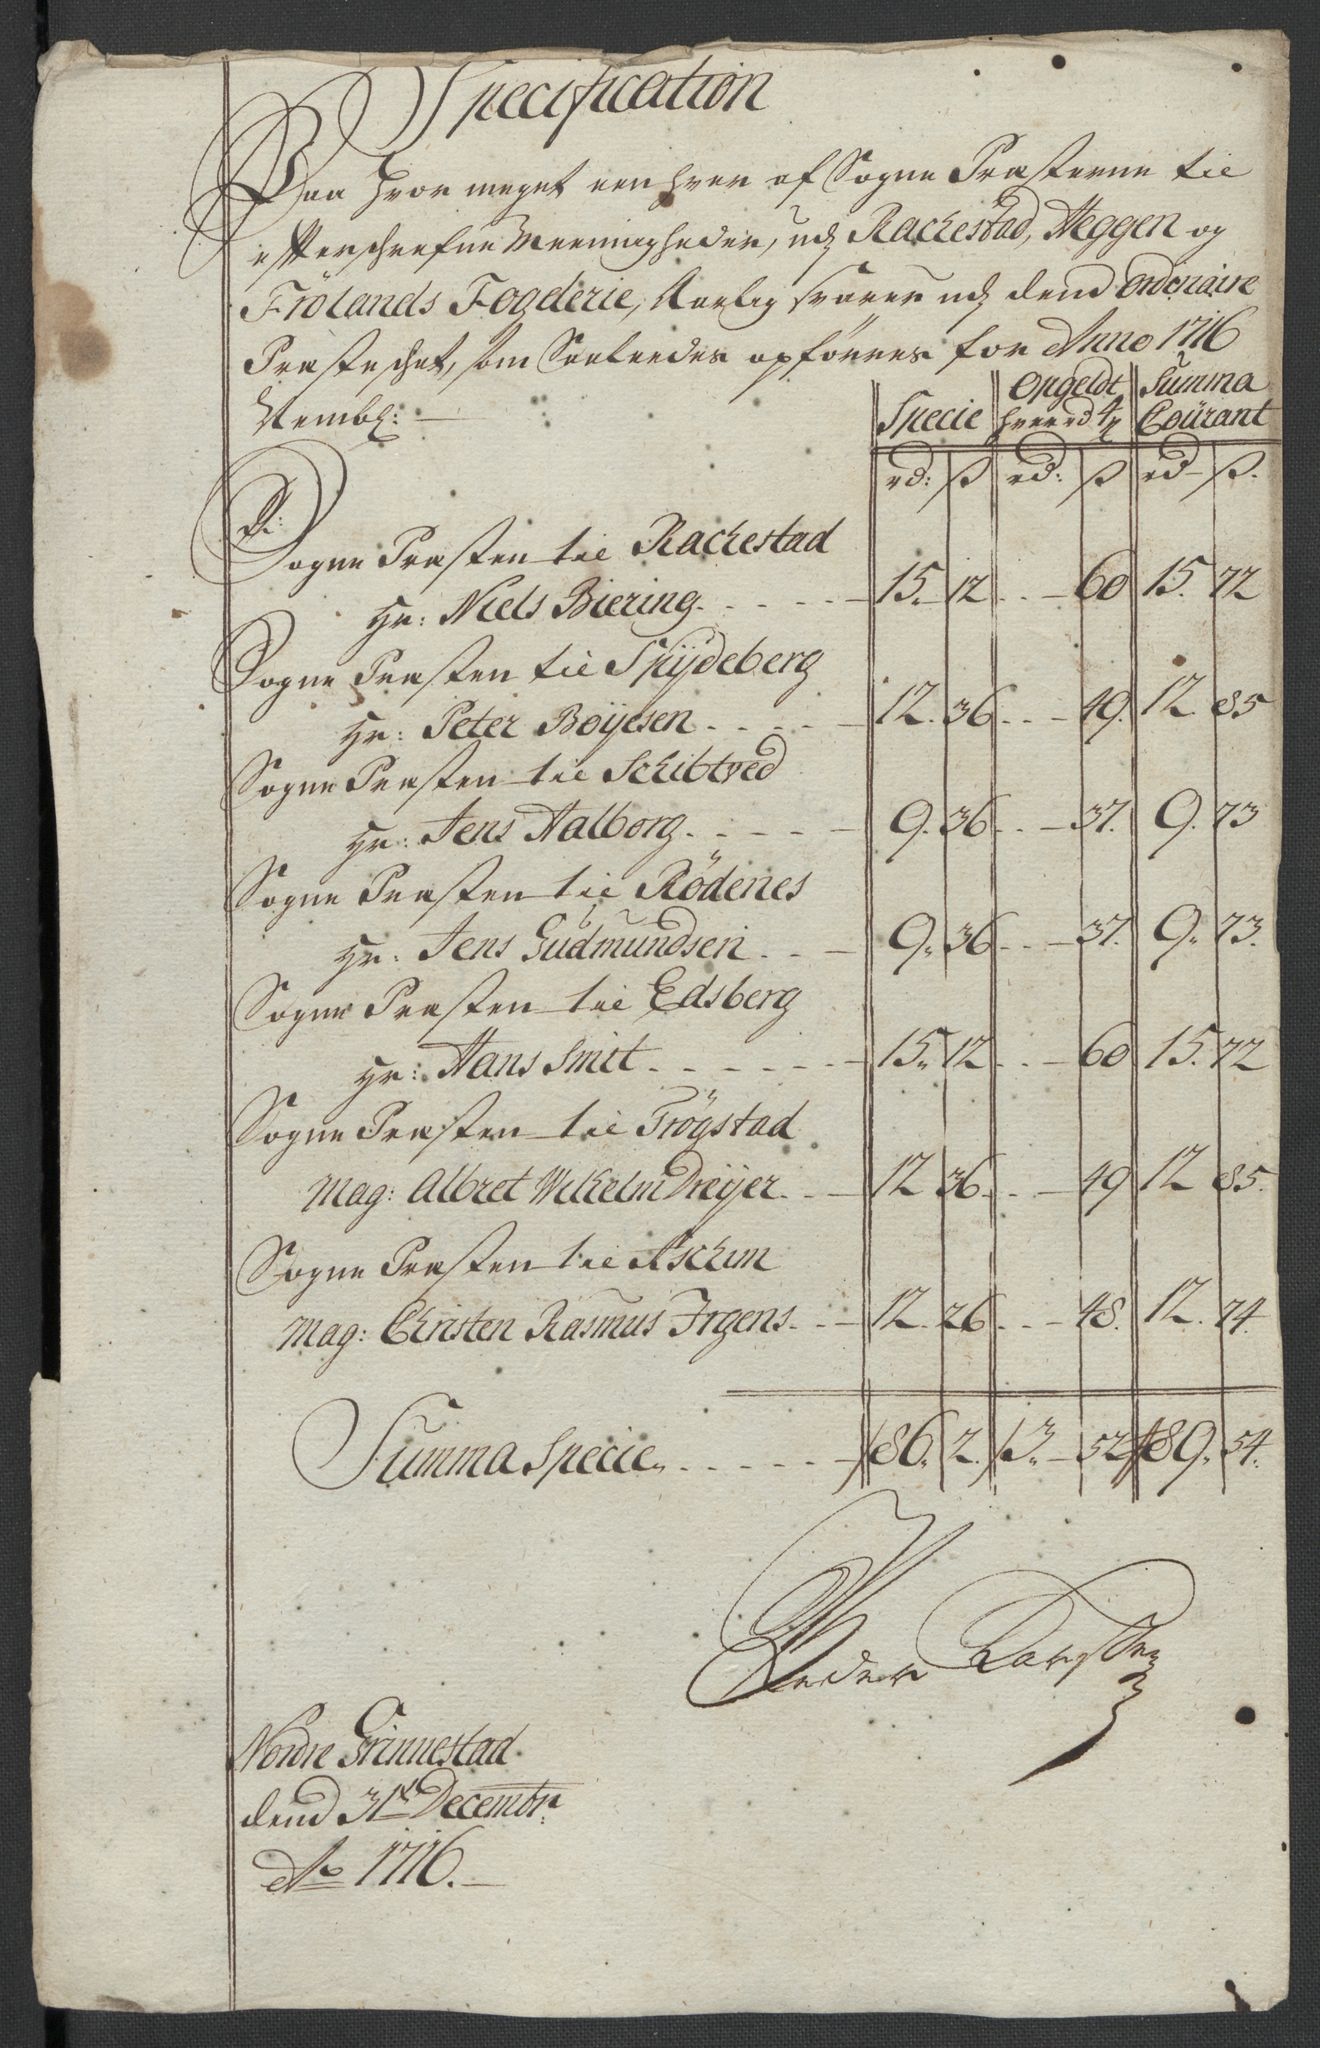 Specification
Paa hvor meget een hver af Sogne Præsterne til
efterschrefne Meenigheder, udj Rackestad, Heggen og
Frölands Fogderie, Aarlig svarer udj dend Ordinaire
Præsteschat, som Saaleedes opföres for Anno 1716
Nembl:
Specie Opgeldt hver rd 4 ß Summa Courant
rd: ß rd: ß rd ß.
Sogne Præsten til Rackestad
Hr: Niels Biering. 15. 12 60 15. 72
Sogne Præsten til Spydeberg
Hr: Peter Böyesen 12. 36 49. 12 85
Sogne Præsten til Schibtved
Hr: Jens Aalborg. 9. 36 37. 9. 73
Sogne Præsten til Rödenes
Hr: Jens Gudmundsen 9. 36 37. 9. 73.
Sogne Præsten til Edsberg
Hr: Hans Smit. 15. 12 60 15. 72
Sogne Præsten til Trögstad
Mag: Albret Wilhelm Dreyer. 12 36 49 12 85.
Sogne Præsten til Aschim
Mag: Christen Rasmus Irgens. 12. 26 48. 12. 74.
Summa Specie 86. 2. 3. 52 89. 54.
Peder Karsten
Nordre Grinnestad
dend 31t Decembr:
Ao 1716.